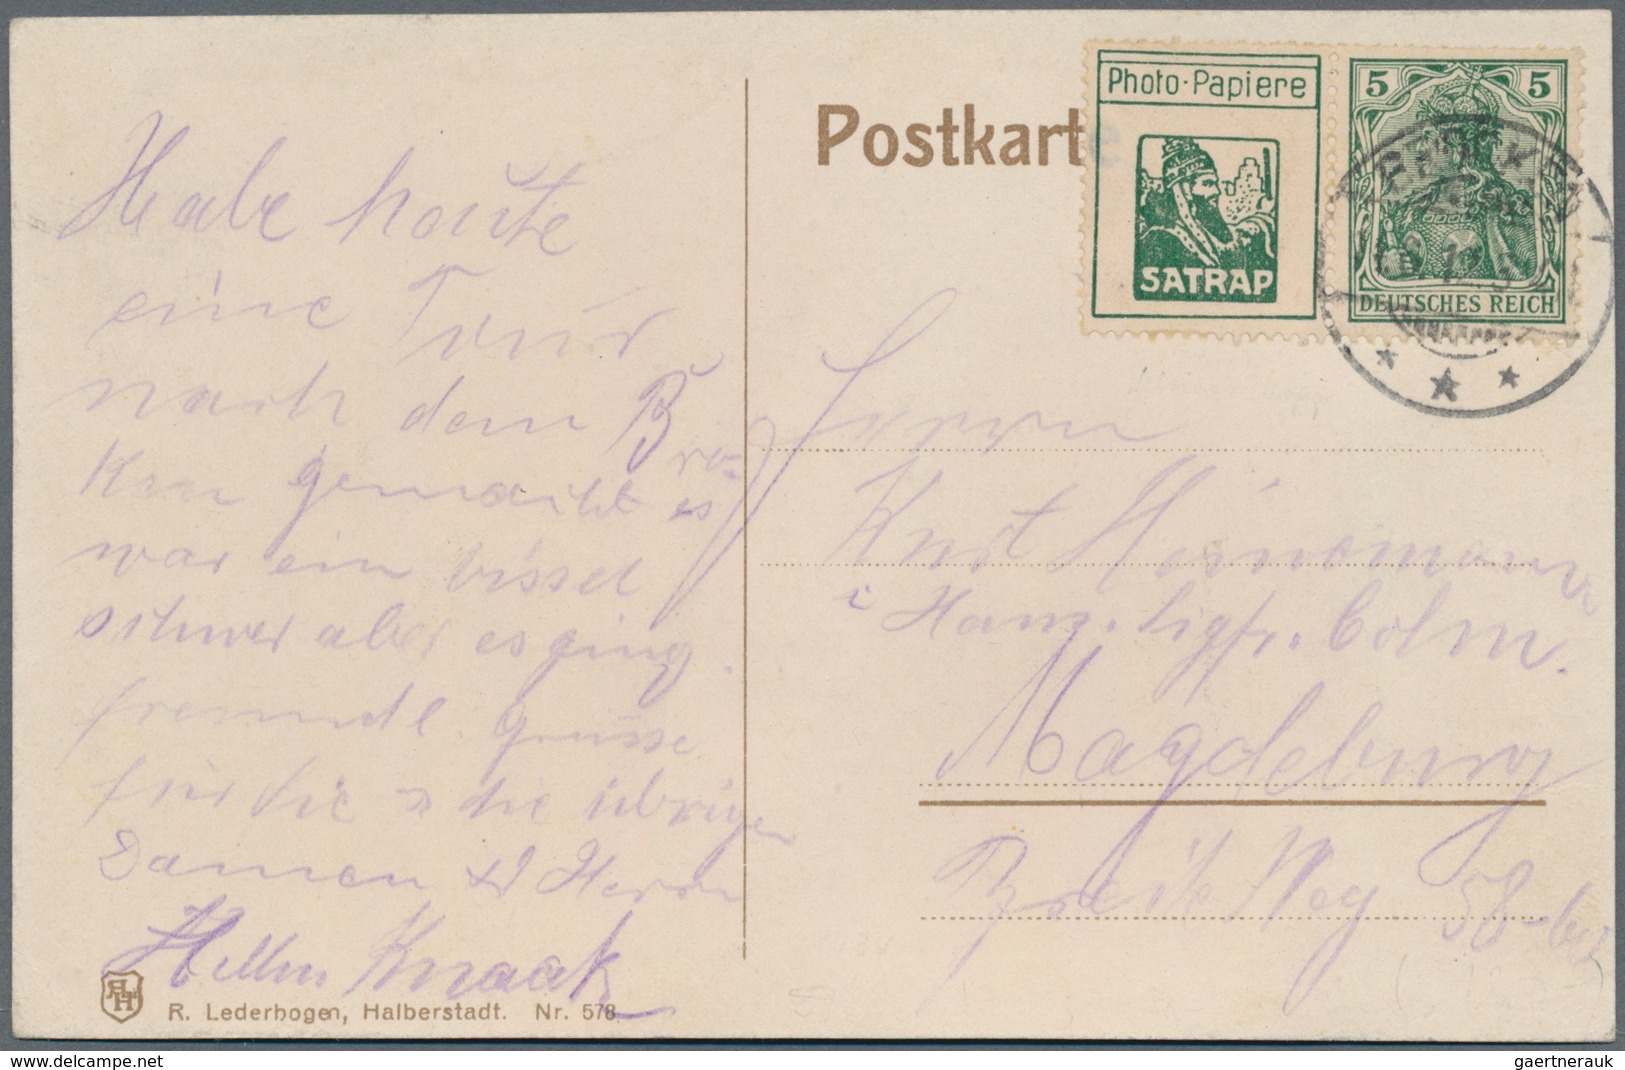 Postkart
Photo-Papiere
SATRAP
5 5
DEUTSCHES REICH
Habe heute
eine Tour
nach dem Bro-
ken gemacht es
war ein bissel
schwer aber es ging.
freundl. Grüsse
für die übrigen
Damen Herrn
Knaak
Herrn
Kurt Heinemann
Magdeburg
Breite Weg 58
R. Lederbogen, Halberstadt. Nr. 578.
www.delcampe.net
gaertnerauk